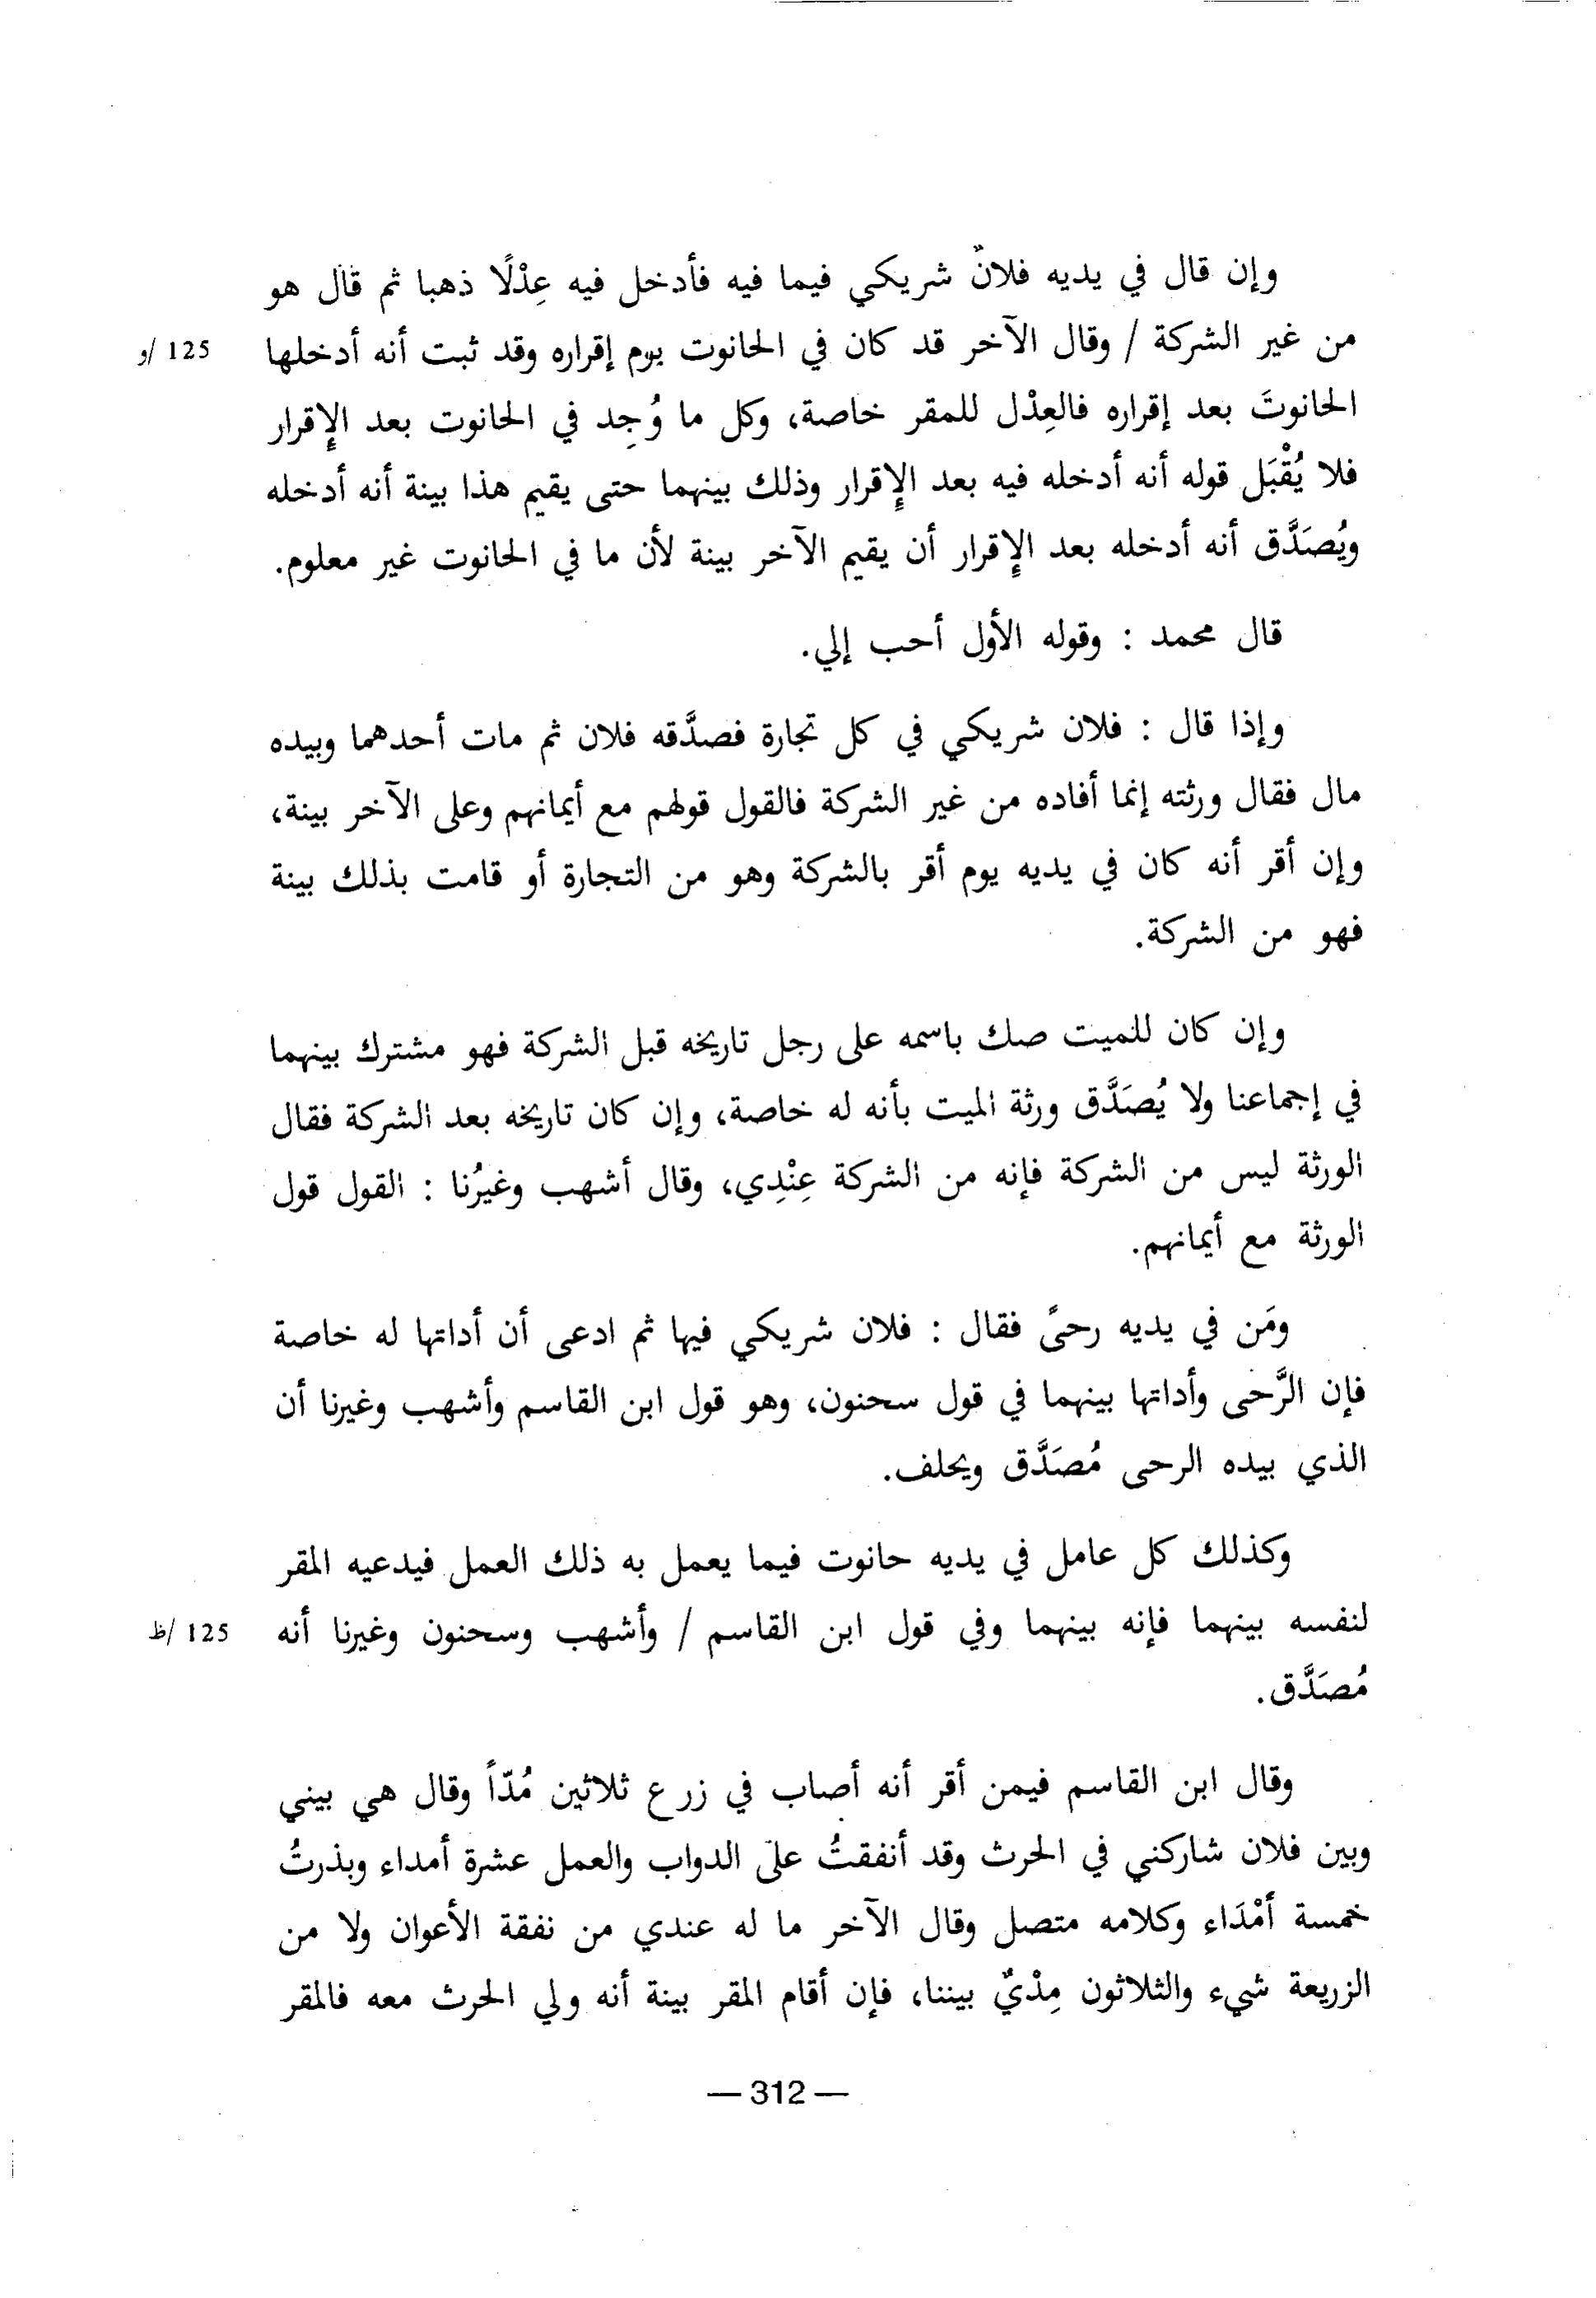 وإن قال في يديه فلانٌ شريكي فيما فيه فأدخل فيه عِدْلًا ذهبا ثم قال هو
من غير الشركة / وقال الآخر قد كان في الحانوت يوم إقراره وقد ثبت أنه أدخلها 125 /و
الحانوتَ بعد إقراره فالعِدْل للمقر خاصة، وكل ما وُجِد في الحانوت بعد الإقرار
فلا يُقْبَل قوله أنه أدخله فيه بعد الإقرار وذلك بينهما حتى يقيم هذا بينة أنه أدخله
ويُصَدَّق أنه أدخله بعد الإقرار أن يقيم الآخر بينة لأن ما في الحانوت غير معلوم.
قال محمد : وقوله الأول أحب إلي.
وإذا قال : فلان شريكي في كل تجارة فصدَّقه فلان ثم مات أحدهما وبيده
مال فقال ورثته إنما أفاده من غير الشركة فالقول قولهم مع أيمانهم وعلى الآخر بينة،
وإن أقر أنه كان في يديه يوم أقر بالشركة وهو من التجارة أو قامت بذلك بينة
فهو من الشركة.
وإن كان للميت صك باسمه على رجل تاريخه قبل الشركة فهو مشترك بينهما
في إجماعنا ولا يُصَدَّق ورثة الميت بأنه له خاصة، وإن كان تاريخه بعد الشركة فقال
الورثة ليس من الشركة فإنه من الشركة عِنْدِي، وقال أشهب وغيرُنا : القول قول
الورثة مع أيمانهم.
ومَن في يديه رحىً فقال : فلان شريكي فيها ثم ادعى أن أداتها له خاصة
فإن الرَّحى وأداتها بينهما في قول سحنون، وهو قول ابن القاسم وأشهب وغيرنا أن
الذي بيده الرحى مُصَدَّق ويحلف.
وكذلك كل عامل في يديه حانوت فيما يعمل به ذلك العمل فيدعيه المقر
لنفسه بينهما فإنه بينهما وفي قول ابن القاسم / وأشهب وسحنون وغيرنا أنه 125 /ظ
مُصَدَّق.
وقال ابن القاسم فيمن أقر أنه أصاب في زرع ثلاثين مُدّاً وقال هي بيني
وبين فلان شاركني في الحرث وقد أنفقتُ على الدواب والعمل عشرة أمداء وبذرتُ
خمسة أمْدَاء وكلامه متصل وقال الآخر ما له عندي من نفقة الأعوان ولا من
الزريعة شيء والثلاثون مِدْيٌ بيننا، فإن أقام المقر بينة أنه ولي الحرث معه فالمقر
— 312 —